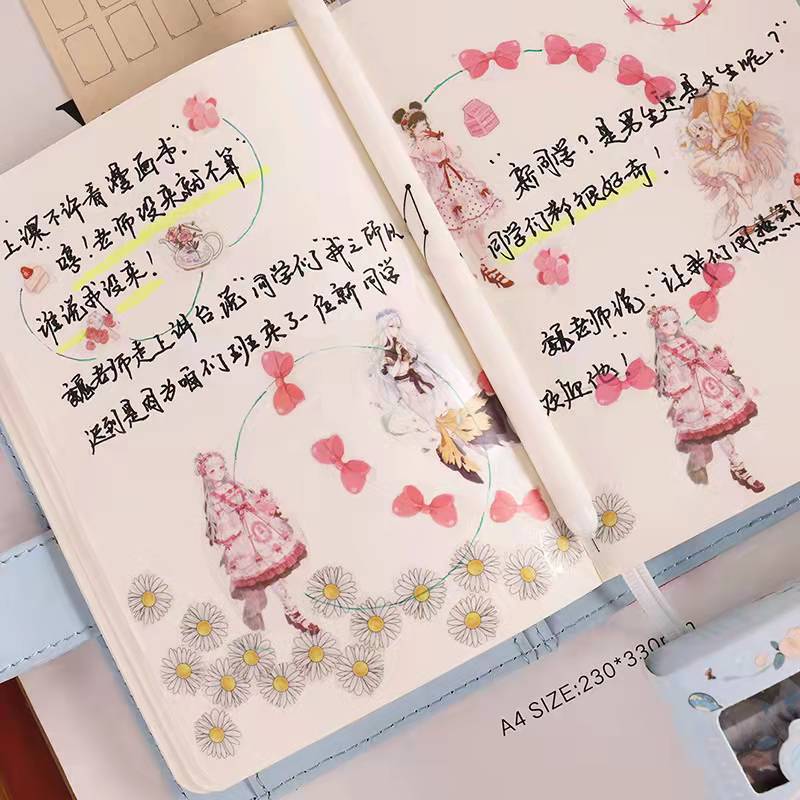 "上课不许看漫画书"
"嘻!老师没来就不算"
谁说我没来!
魏老师走上讲台说"同学们"我之所以
迟到是因为咱们班来了一位新同学
"新同学?是男生还是女生呢?"
同学们都很好奇!
魏老师说:"让我们用热烈
欢迎他!
A4 SIZE:230*330